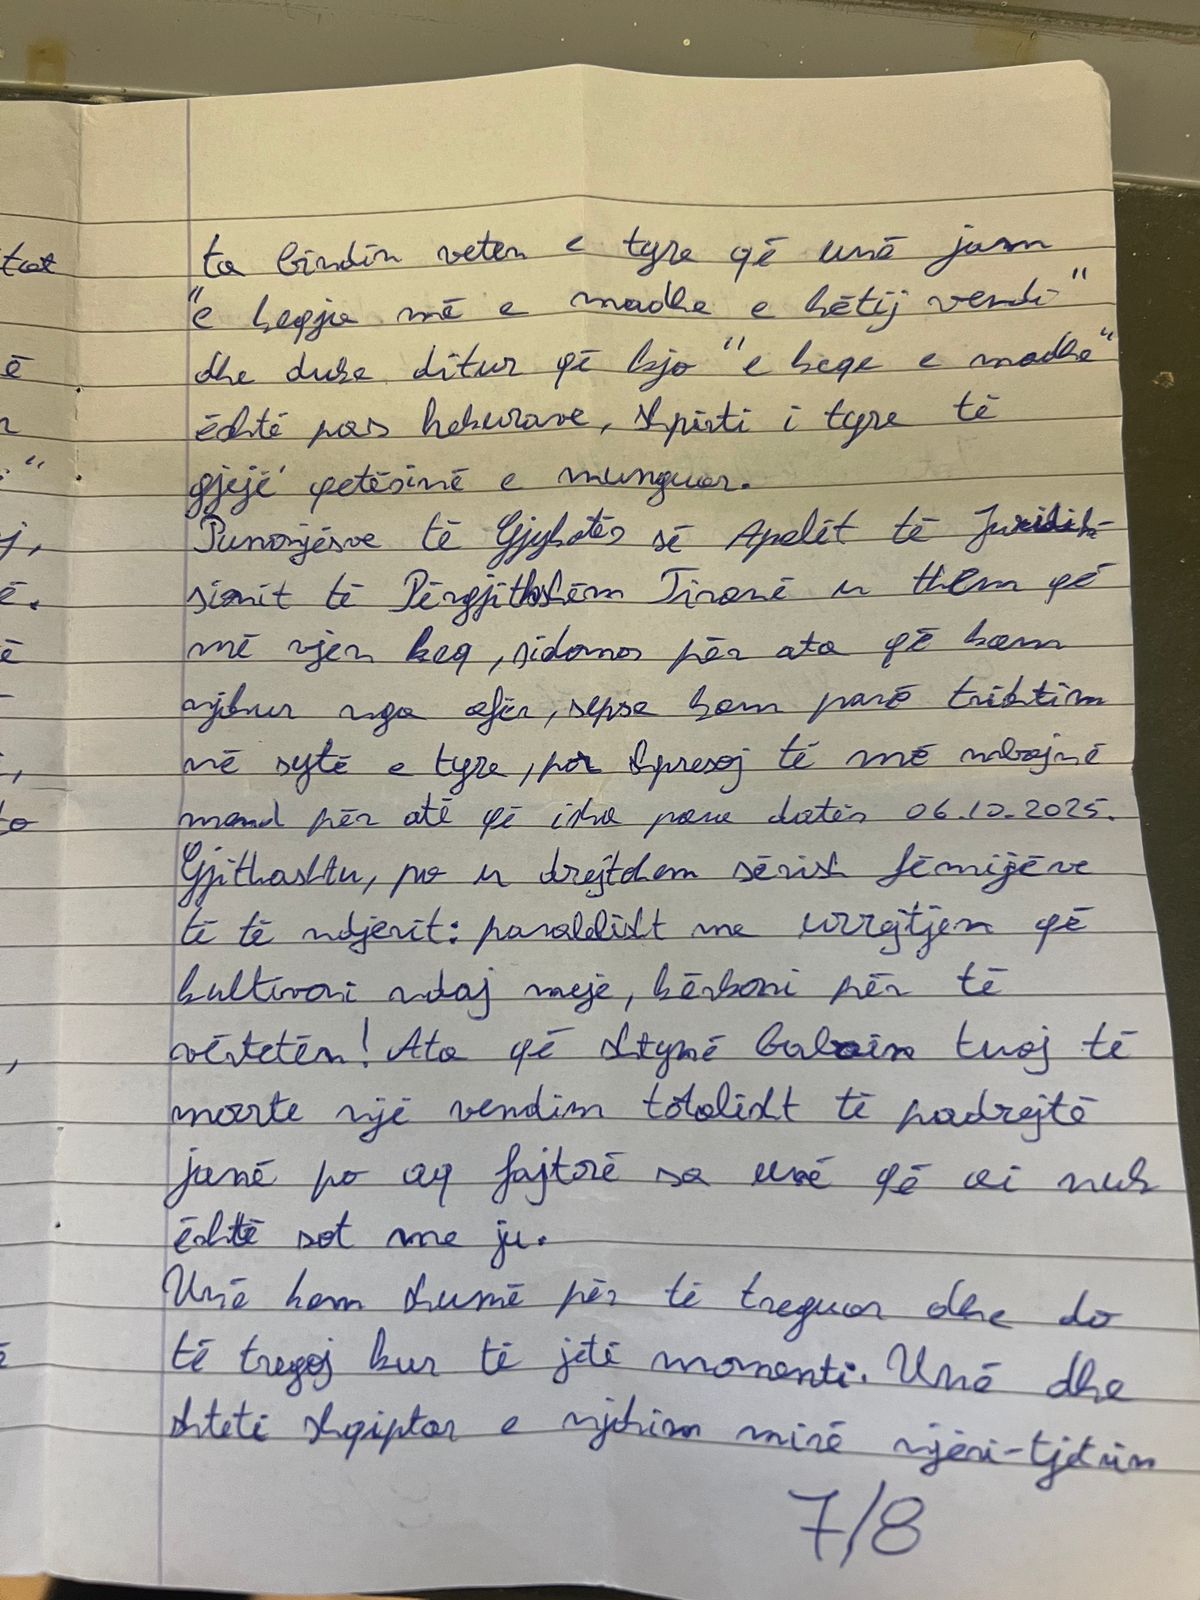 ta bindin veten e tyre që unë jam
"e keqja më e madhe e këtij vendi"
dhe duke ditur që kjo "e keqe e madhe"
është pas hekurave, shpirti i tyre të
gjejë qetësinë e munguar.
Punonjësve të Gjykatës së Apelit të Juridik-
sionit të Përgjithshëm Tiranë u them që
më vjen keq, sidomos për ata që kam
njohur nga afër, sepse kam parë trishtim
në sytë e tyre, por shpresoj të më mbajnë
mend për atë që isha para datës 06.10.2025.
Gjithashtu, po u drejtohem sërish fëmijëve
të të ndjerit: paralelisht me urrejtjen që
kultivoni ndaj meje, kërkoni për të
vërtetën! Ata që shtynë babain tuaj të
marrte një vendim totalisht të padrejtë
janë po aq fajtorë sa unë që ai nuk
është sot me ju.
Unë kam shumë për të treguar dhe do
të tregoj kur të jetë momenti. Unë dhe
shteti shqiptar e njohim mirë njëri-tjetrin
7/8